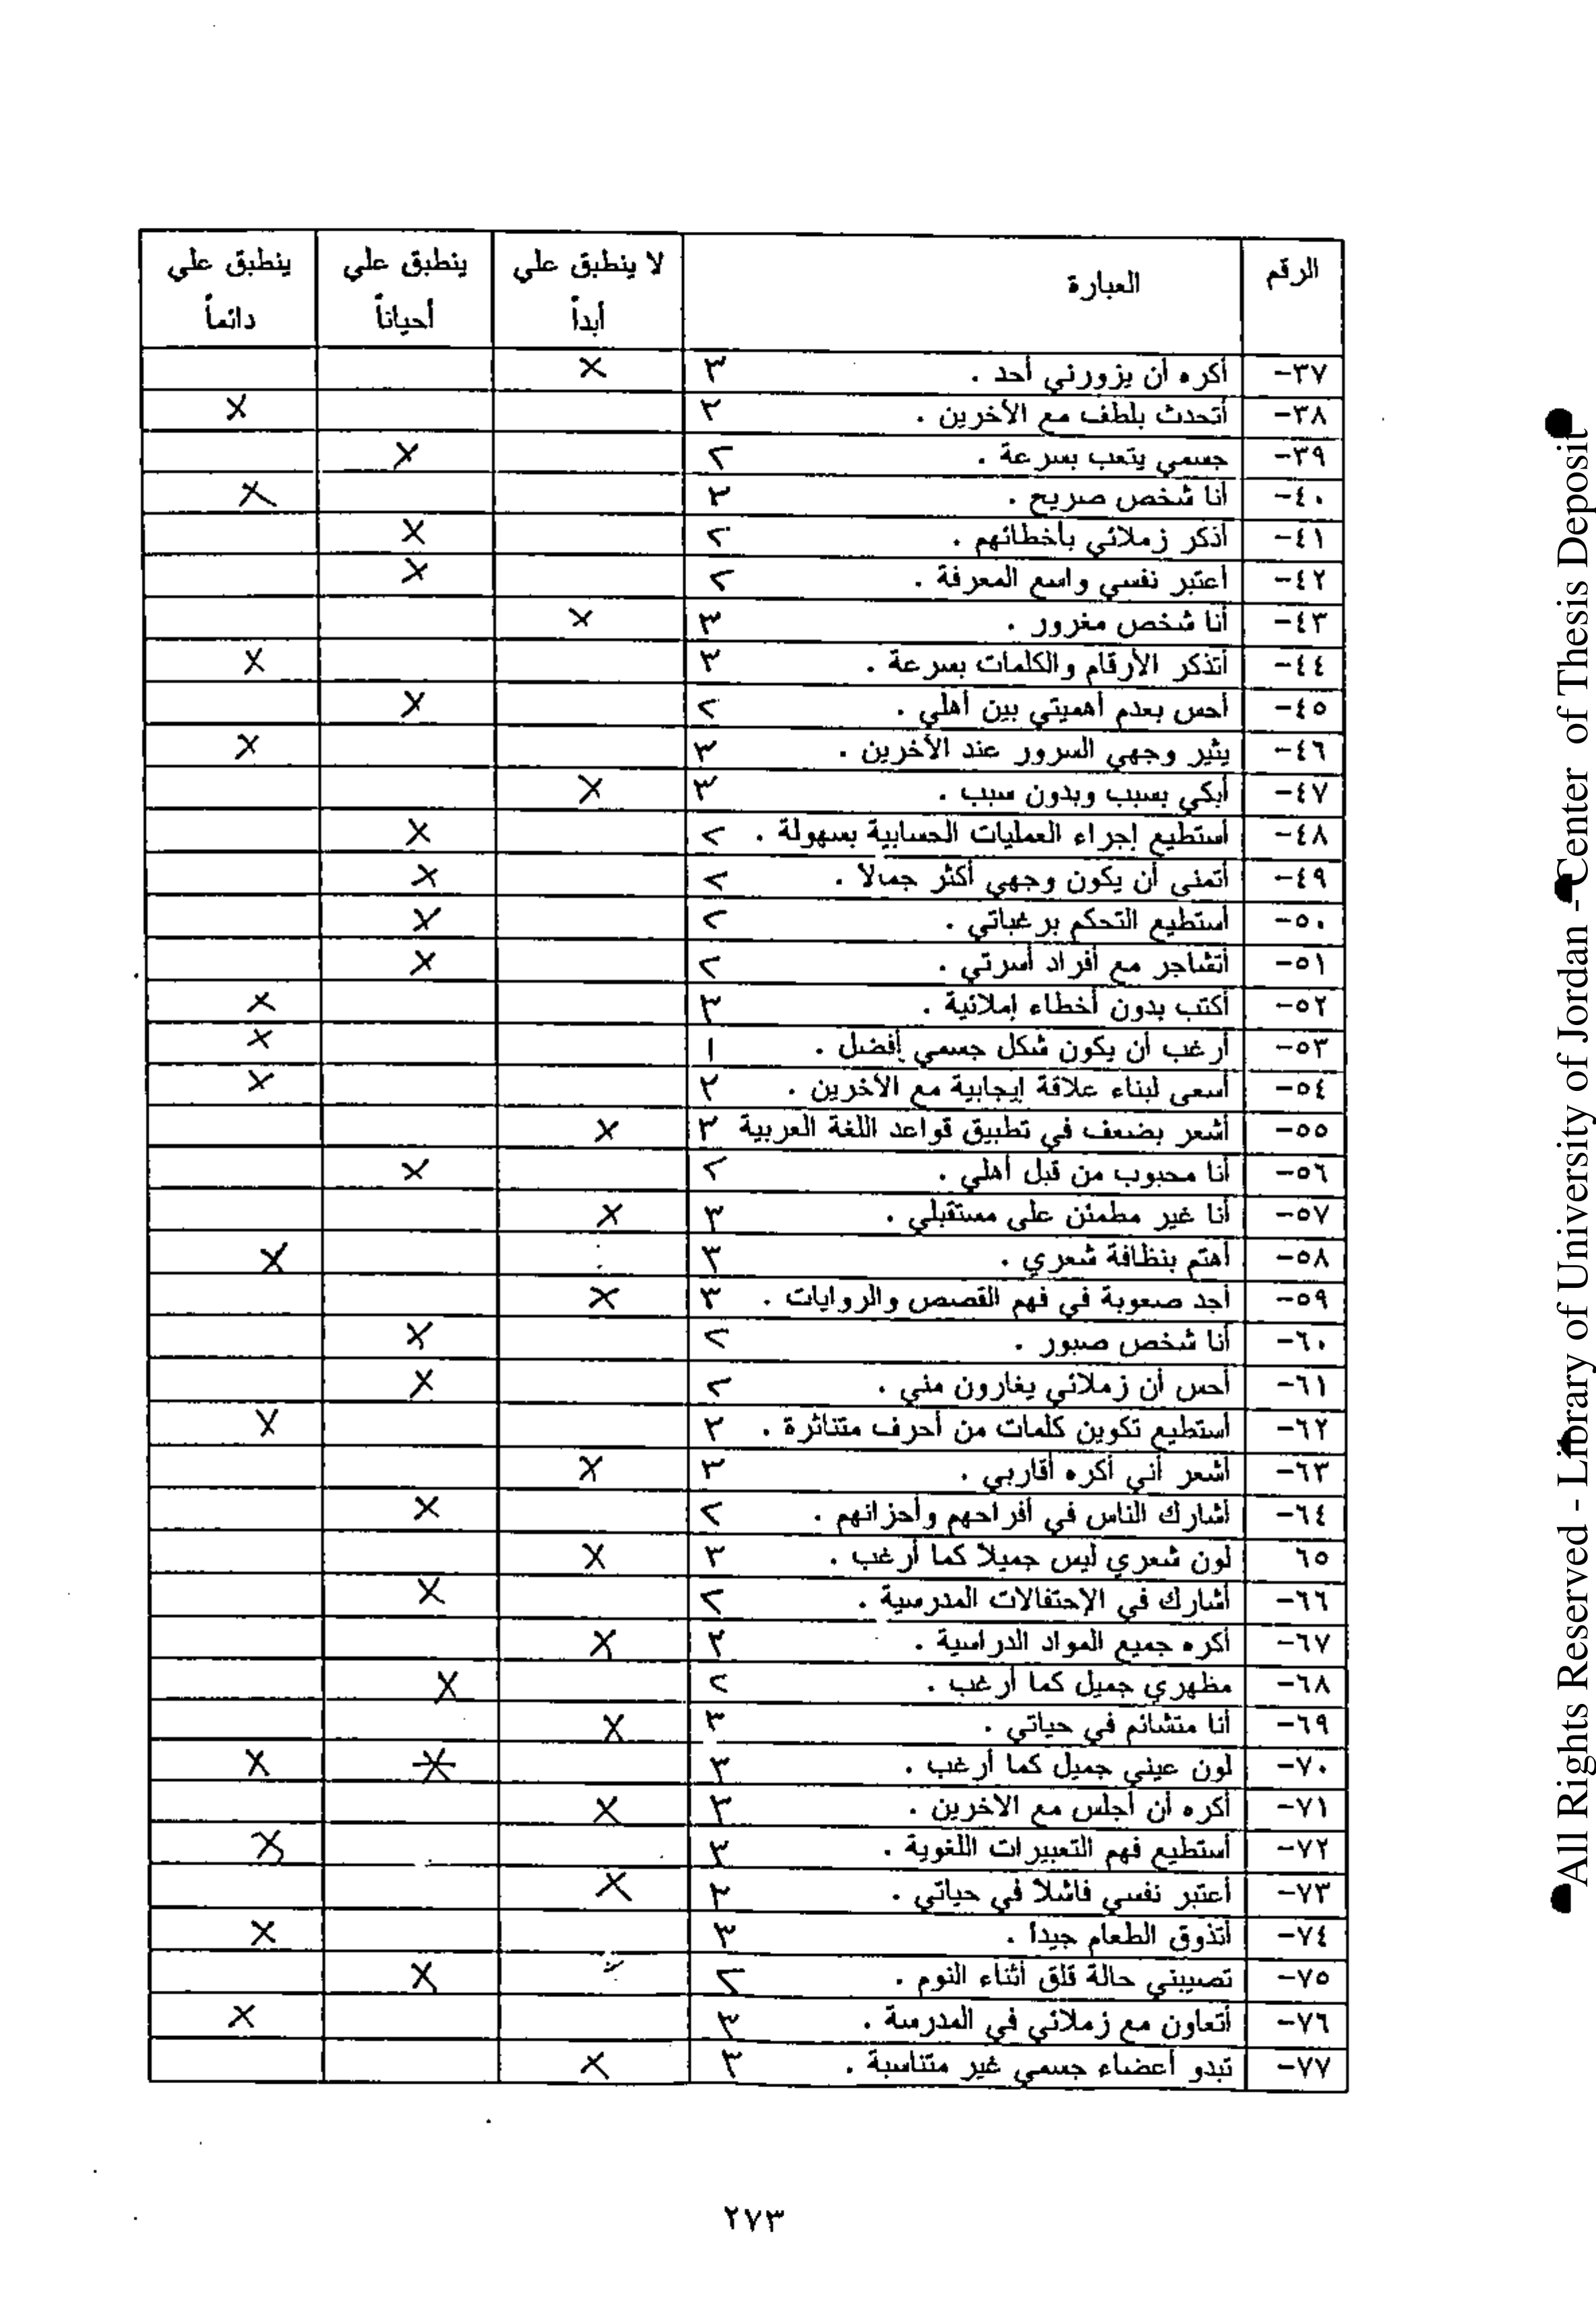 الرقم العبارة لا ينطبق علي أبداً ينطبق علي أحياناً ينطبق علي دائماً
٣٧- أكره أن يزورني أحد . ٣ ×
٣٨- أتحدث بلطف مع الآخرين . ٣ ×
٣٩- جسمي يتعب بسرعة . ٢ ×
٤٠- أنا شخص صريح . ٣ ×
٤١- أذكر زملائي بأخطائهم . ٢ ×
٤٢- أعتبر نفسي واسع المعرفة . ٢ ×
٤٣- أنا شخص مغرور . ٣ ×
٤٤- أتذكر الأرقام والكلمات بسرعة . ٣ ×
٤٥- أحس بعدم أهميتي بين أهلي . ٢ ×
٤٦- يثير وجهي السرور عند الآخرين . ٣ ×
٤٧- أبكي بسبب وبدون سبب . ٣ ×
٤٨- أستطيع إجراء العمليات الحسابية بسهولة . ٢ ×
٤٩- أتمنى أن يكون وجهي أكثر جمالا . ٢ ×
٥٠- أستطيع التحكم برغباتي . ٢ ×
٥١- أتشاجر مع أفراد أسرتي . ٢ ×
٥٢- أكتب بدون أخطاء إملائية . ٣ ×
٥٣- أرغب أن يكون شكل جسمي أفضل . ١ ×
٥٤- أسعى لبناء علاقة إيجابية مع الآخرين . ٣ ×
٥٥- أشعر بضعف في تطبيق قواعد اللغة العربية ٣ ×
٥٦- أنا محبوب من قبل أهلي . ٢ ×
٥٧- أنا غير مطمئن على مستقبلي . ٣ ×
٥٨- أهتم بنظافة شعري . ٣ ×
٥٩- أجد صعوبة في فهم القصص والروايات . ٣ ×
٦٠- أنا شخص صبور . ٢ ×
٦١- أحس أن زملائي يغارون مني . ٢ ×
٦٢- أستطيع تكوين كلمات من أحرف متناثرة . ٣ ×
٦٣- أشعر أني أكره أقاربي . ٣ ×
٦٤- أشارك الناس في أفراحهم وأحزانهم . ٢ ×
٦٥ لون شعري ليس جميلا كما أرغب . ٣ ×
٦٦- أشارك في الإحتفالات المدرسية . ٢ ×
٦٧- أكره جميع المواد الدراسية . ٣ ×
٦٨- مظهري جميل كما أرغب . ٢ ×
٦٩- أنا متشائم في حياتي . ٣ ×
٧٠- لون عيني جميل كما أرغب . ٣ × ×
٧١- أكره أن أجلس مع الآخرين . ٣ ×
٧٢- أستطيع فهم التعبيرات اللغوية . ٣ ×
٧٣- أعتبر نفسي فاشلا في حياتي . ٣ ×
٧٤- أتذوق الطعام جيدا . ٣ ×
٧٥- تصيبني حالة قلق أثناء النوم . ٢ ×
٧٦- أتعاون مع زملائي في المدرسة . ٣ ×
٧٧- تبدو أعضاء جسمي غير متناسبة . ٣ ×
٢٧٣
All Rights Reserved - Library of University of Jordan - Center of Thesis Deposit